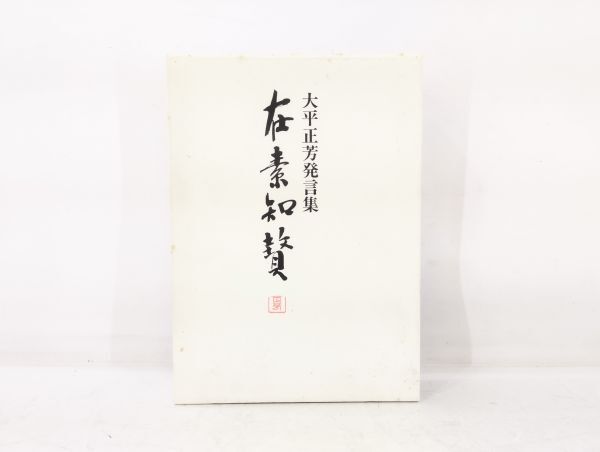 大平正芳発言集
在素知贅